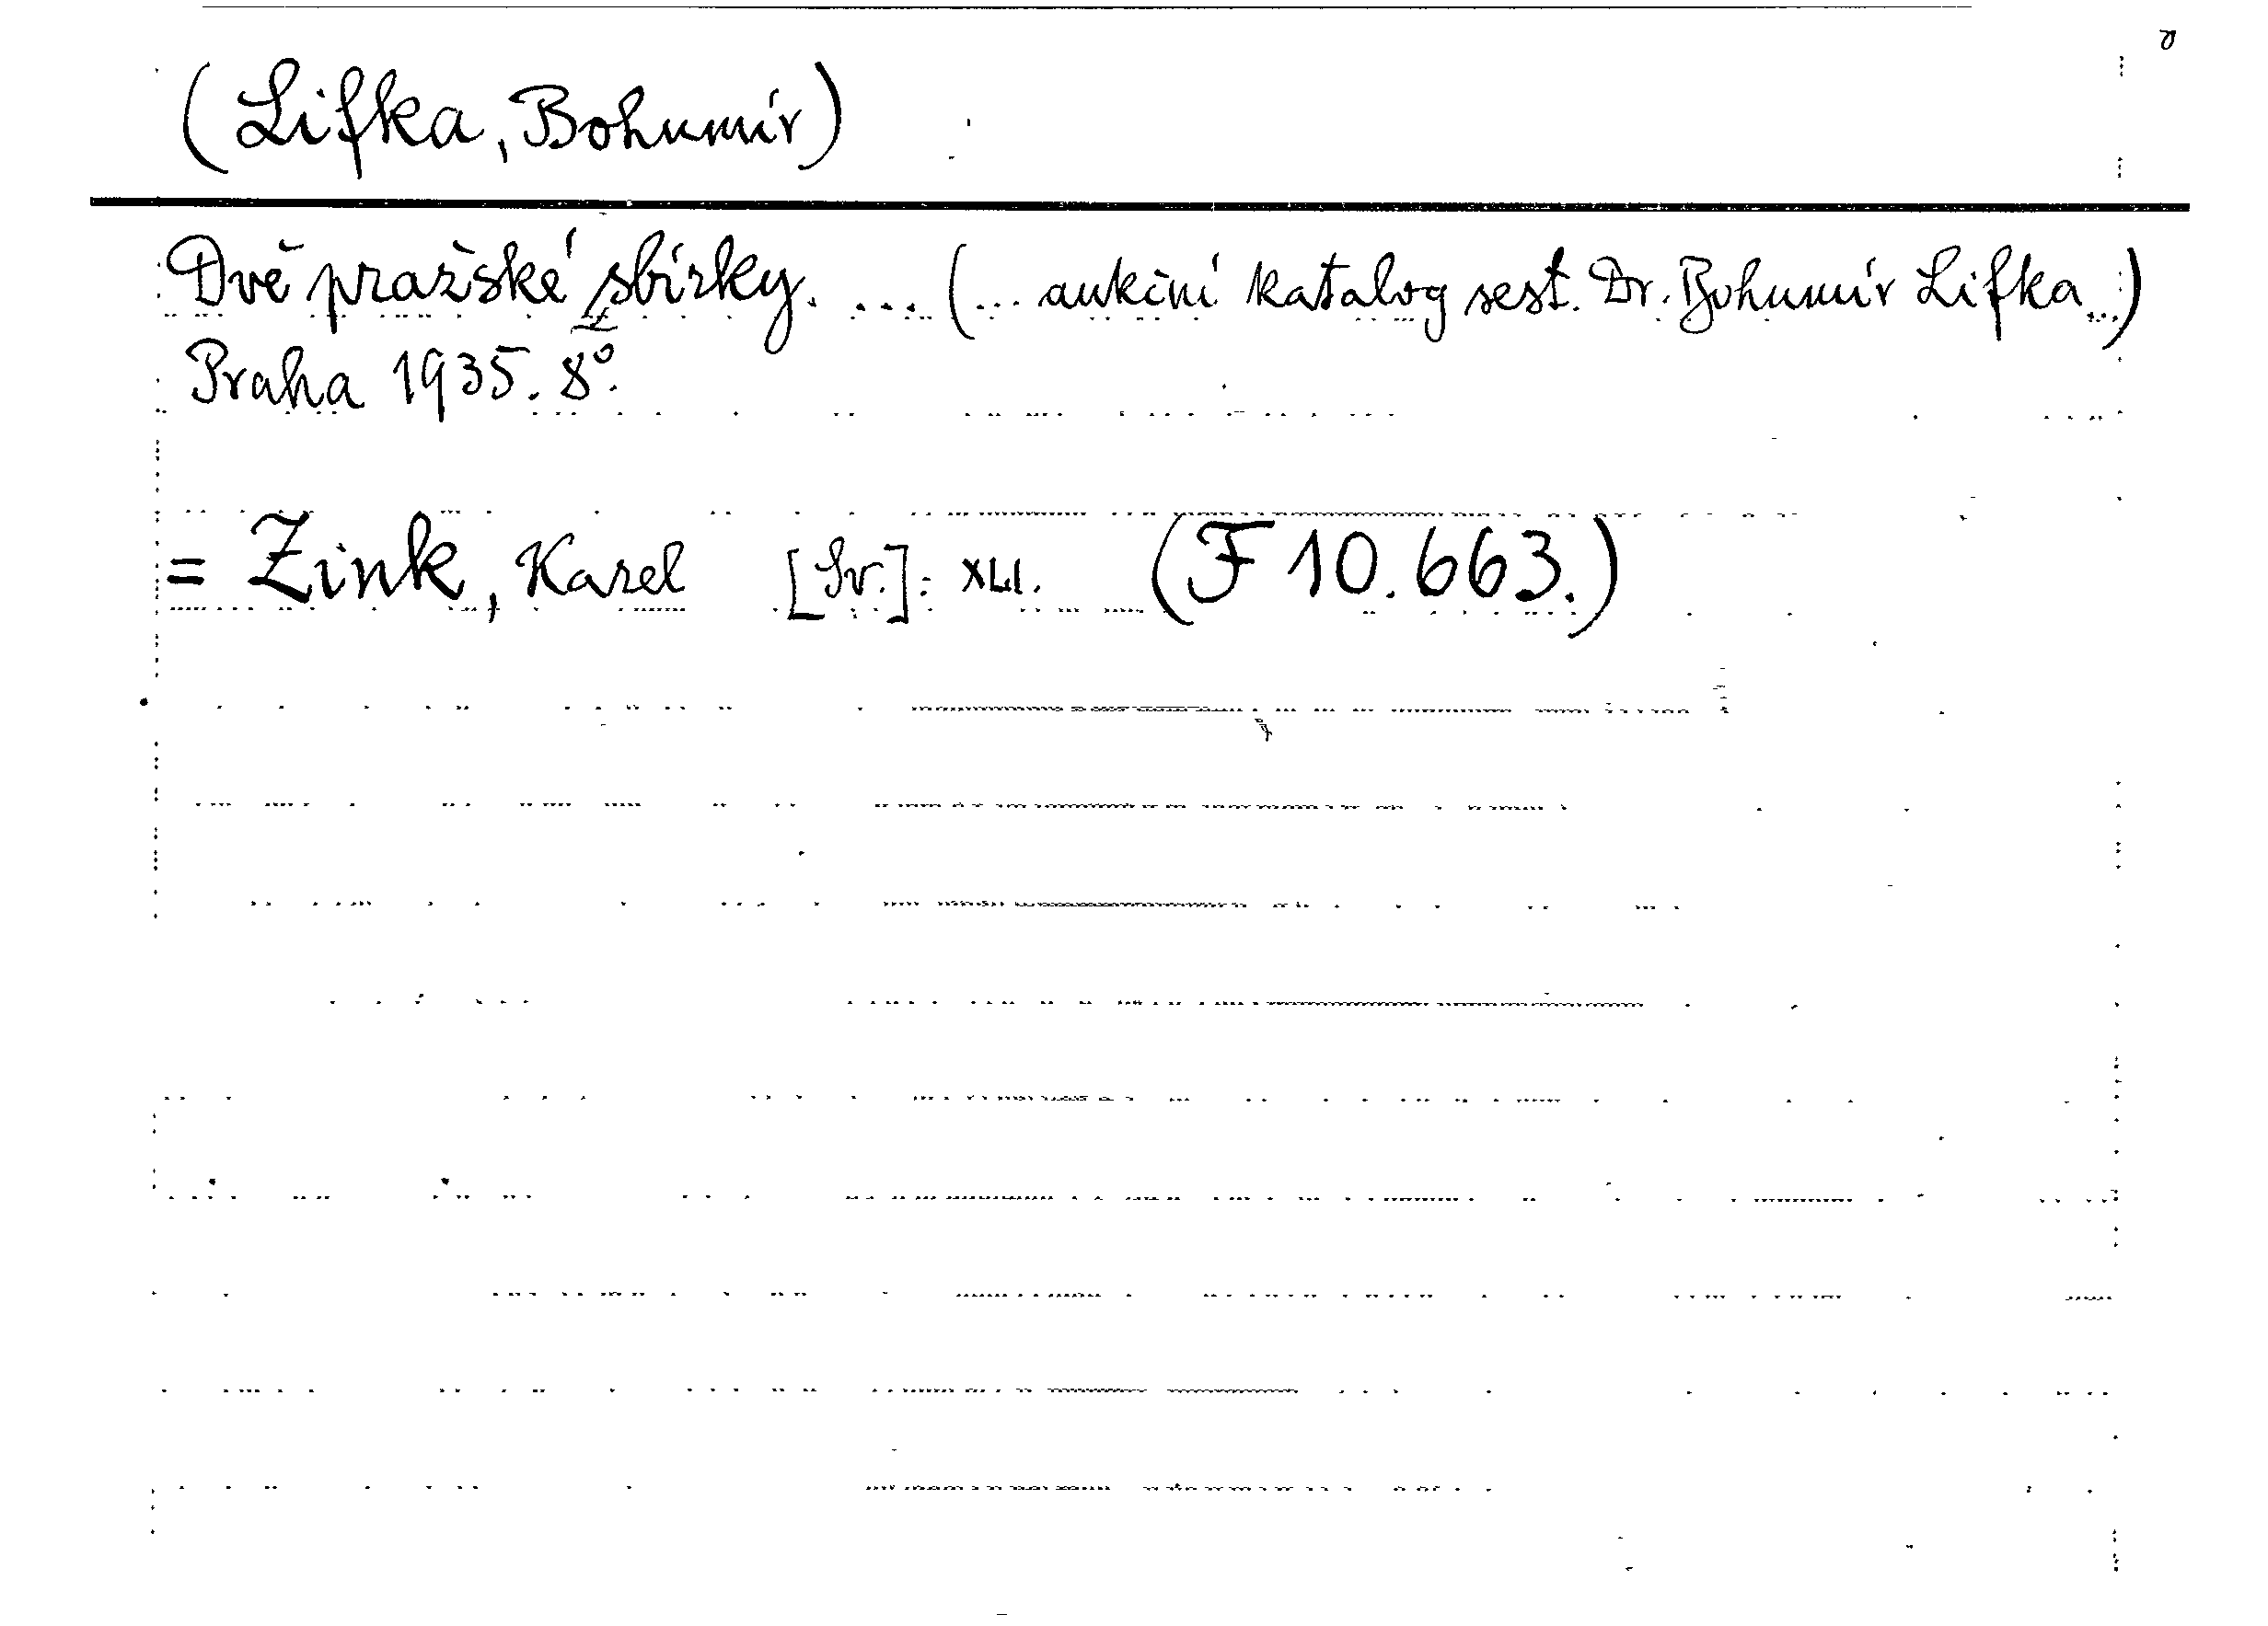 (Lifka, Bohumír)
Dvě pražské sbírky. ... (... aukční katalog sest. Dr. Bohumír Lifka...)
Praha 1935. 8°.
= Zink, Karel [Sv.]: XLI. (F 10.663.)